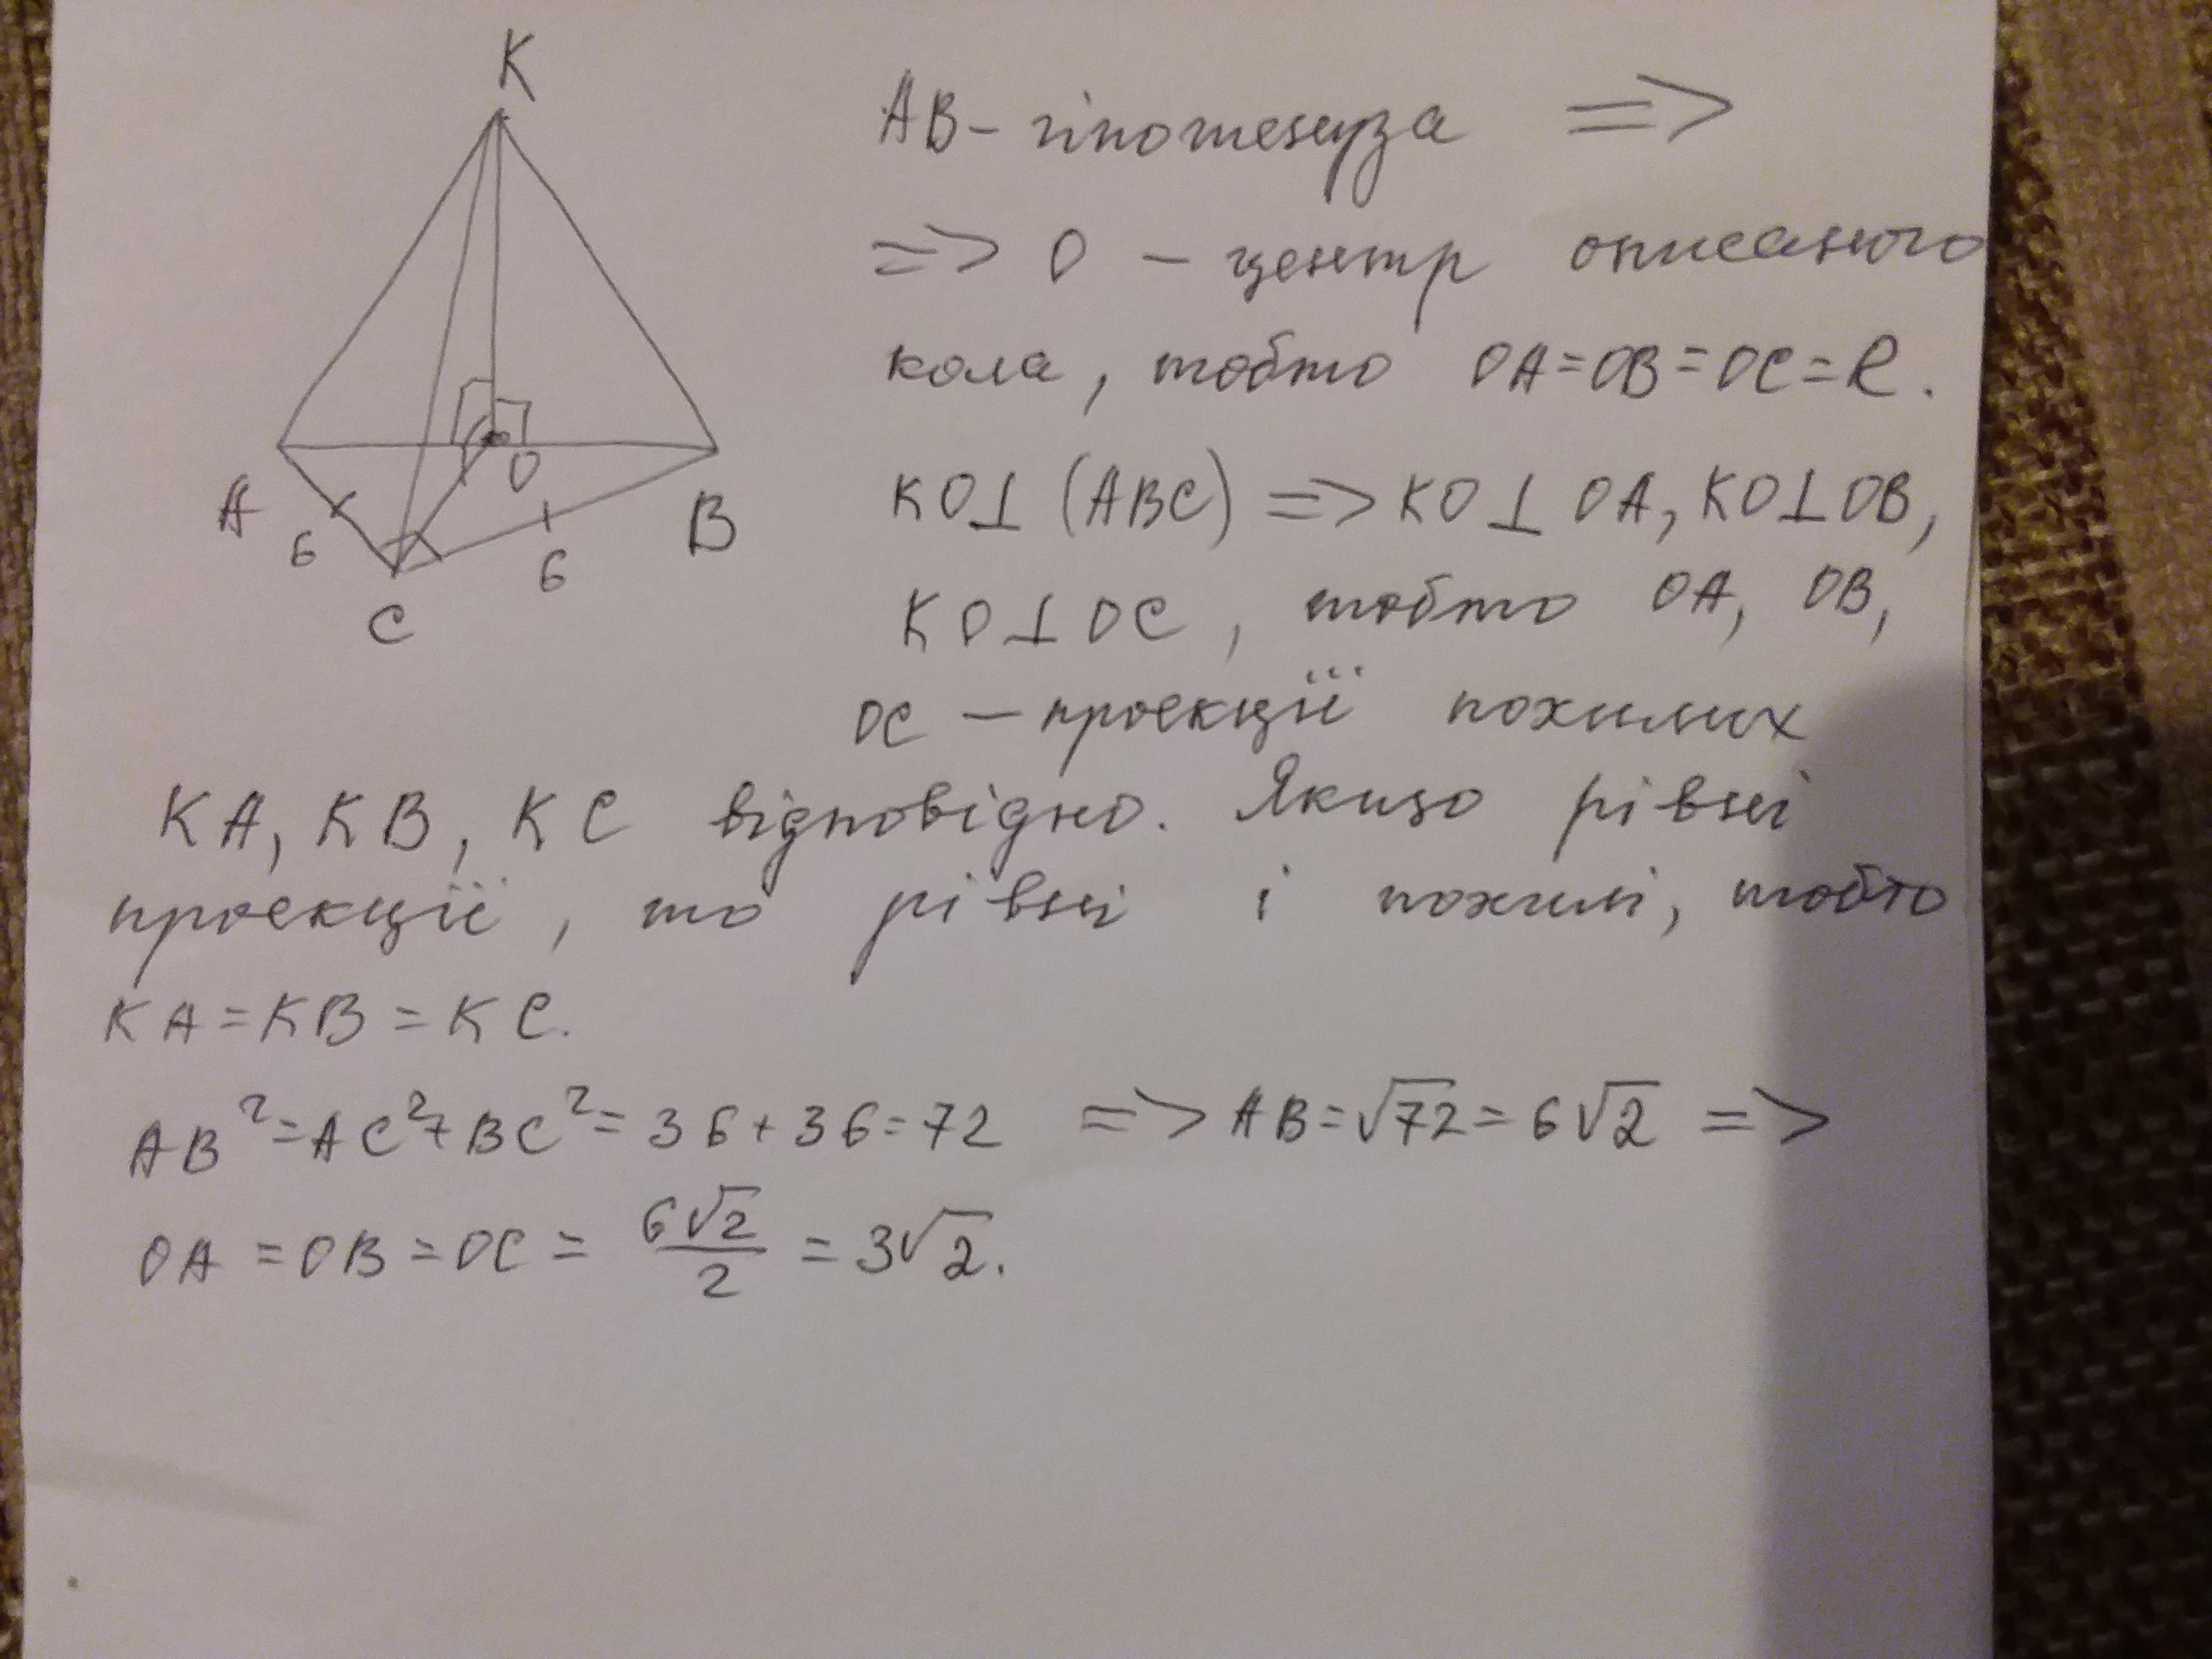 K
A
6
C
O
6
B
AB – гіпотенуза =>
=> O – центр описаного
кола, тобто OA = OB = OC = R.
KO⊥(ABC) => KO⊥OA, KO⊥OB,
KO⊥OC, тобто OA, OB,
OC – проекції похилих
KA, KB, KC відповідно. Якщо рівні
проекції, то рівні і похилі, тобто
KA = KB = KC.
AB² = AC² + BC² = 36 + 36 = 72 => AB = √72 = 6√2 =>
OA = OB = OC = 6√2/2 = 3√2.